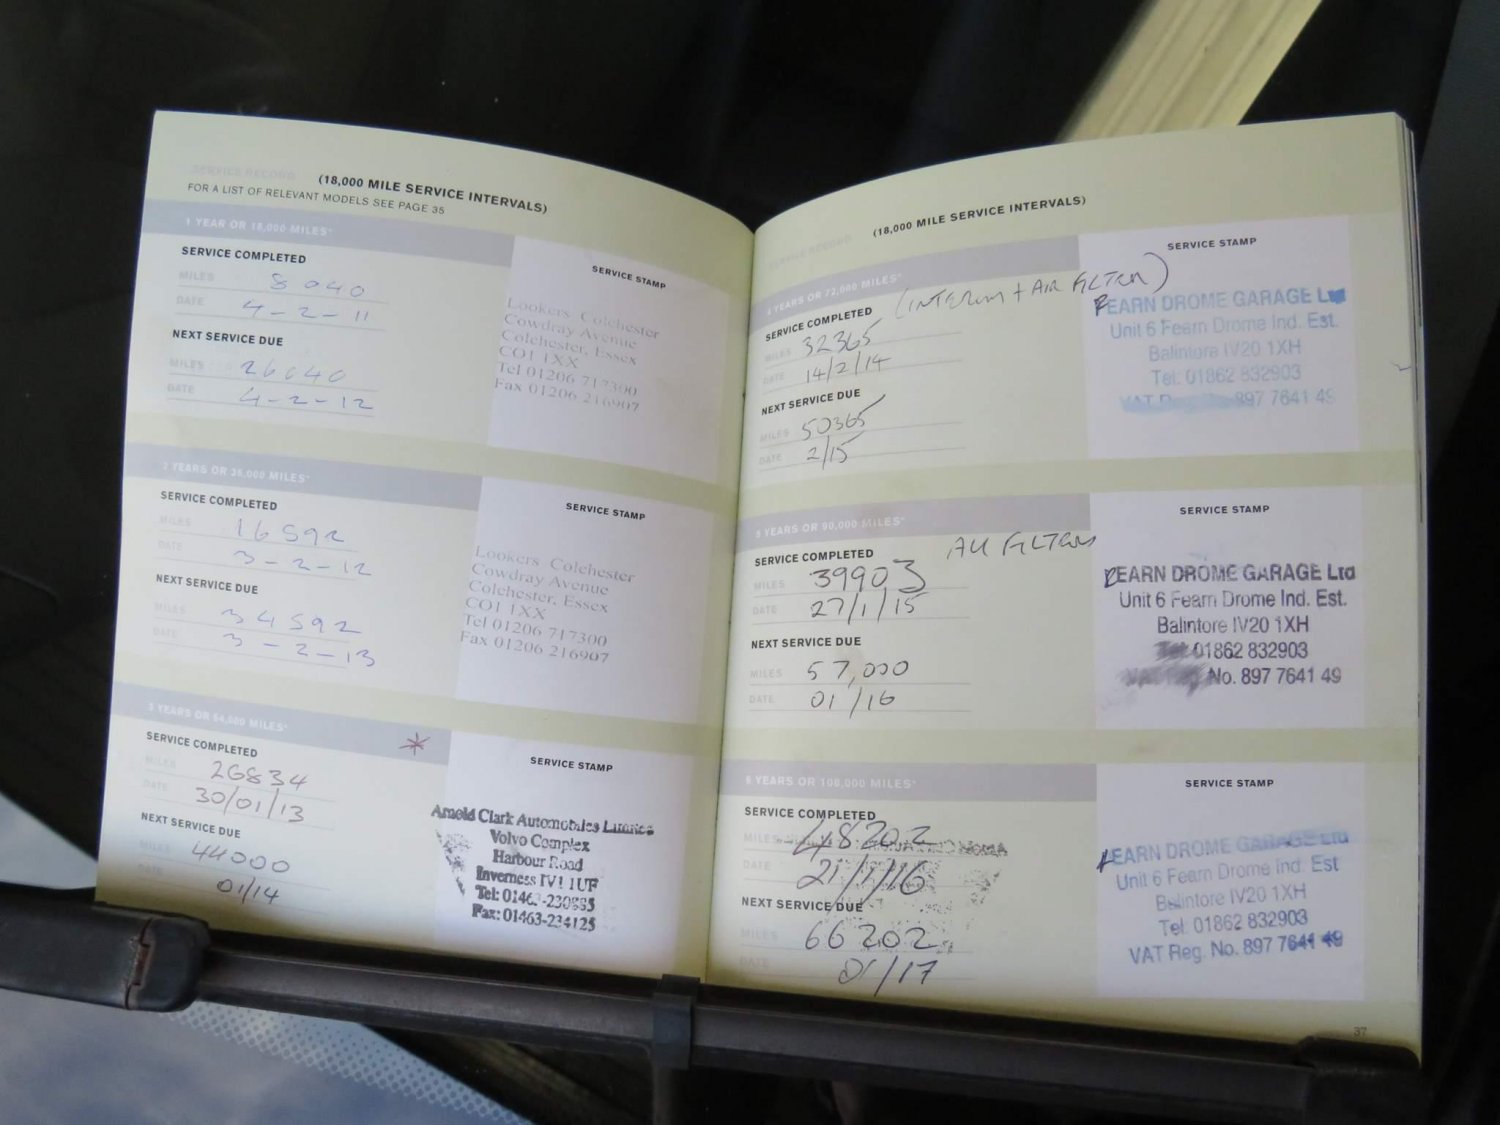 SERVICE RECORD (18,000 MILE SERVICE INTERVALS)
FOR A LIST OF RELEVANT MODELS SEE PAGE 35
1 YEAR OR 18,000 MILES*
SERVICE COMPLETED
MILES 8040
DATE 4-2-11
NEXT SERVICE DUE
MILES 26040
DATE 4-2-12
SERVICE STAMP
Lookers Colchester
Cowdray Avenue
Colchester, Essex
CO1 1XX
Tel 01206 717300
Fax 01206 216907
2 YEARS OR 36,000 MILES*
SERVICE COMPLETED
MILES 16592
DATE 3-2-12
NEXT SERVICE DUE
MILES 34592
DATE 3-2-13
SERVICE STAMP
Lookers Colchester
Cowdray Avenue
Colchester, Essex
CO1 1XX
Tel 01206 717300
Fax 01206 216907
3 YEARS OR 54,000 MILES*
SERVICE COMPLETED
MILES 26834
DATE 30/01/13
NEXT SERVICE DUE
MILES 44000
DATE 01/14
SERVICE STAMP
Arnold Clark Automobiles Limited
Volvo Complex
Harbour Road
Inverness IV1 1UF
Tel: 01463-230885
Fax: 01463-234125
SERVICE RECORD (18,000 MILE SERVICE INTERVALS)
4 YEARS OR 72,000 MILES*
(INTERIM + AIR FILTER)
SERVICE COMPLETED
MILES 32365
DATE 14/2/14
NEXT SERVICE DUE
MILES 50365
DATE 2/15
SERVICE STAMP
FEARN DROME GARAGE Ltd
Unit 6 Fearn Drome Ind. Est.
Balintore IV20 1XH
Tel: 01862 832903
VAT Reg No. 897 7641 49
5 YEARS OR 90,000 MILES*
SERVICE COMPLETED ALL FILTERS
MILES 39903
DATE 27/1/15
NEXT SERVICE DUE
MILES 57,000
DATE 01/16
SERVICE STAMP
FEARN DROME GARAGE Ltd
Unit 6 Fearn Drome Ind. Est.
Balintore IV20 1XH
Tel: 01862 832903
VAT Reg No. 897 7641 49
6 YEARS OR 108,000 MILES*
SERVICE COMPLETED
MILES 48202
DATE 21/1/16
NEXT SERVICE DUE
MILES 66202
DATE 01/17
SERVICE STAMP
FEARN DROME GARAGE Ltd
Unit 6 Fearn Drome Ind. Est
Balintore IV20 1XH
Tel: 01862 832903
VAT Reg. No. 897 7641 49
37